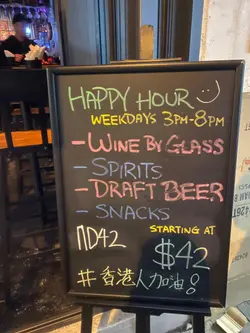 HAPPY HOUR
WEEKDAYS 3PM-8PM
- WINE BY GLASS
- SPIRITS
- DRAFT BEER
- SNACKS
ND42
STARTING AT
$42
#香港人加油!